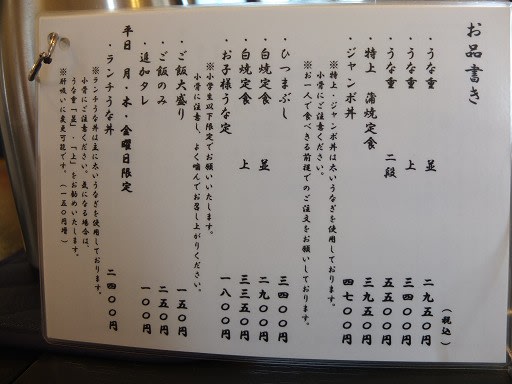 お品書き
(税込)
・うな重 並 二九五〇円
・うな重 上 三四〇〇円
・うな重 二段 五五〇〇円
・特上 蒲焼定食 三九五〇円
・ジャンボ丼 四七〇〇円
※特上・ジャンボ丼は太いうなぎを使用しております。
小骨にご注意ください。
※お一人で食べきる前提でのご注文をお願いしております。
・ひつまぶし 三四〇〇円
・白焼定食 並 二九〇〇円
・白焼定食 上 三三五〇円
・お子様うな定 一八〇〇円
※小学生以下限定でお願いいたします。
小骨に注意し、よく噛んでお召し上がりください。
・ご飯大盛り 一五〇円
・ご飯のみ 二五〇円
・追加タレ 一〇〇円
平日 月・木・金曜日限定
・ランチうな丼 二四〇〇円
※ランチうな丼は主に太いうなぎを使用しております。
小骨にご注意ください。気になる場合は、
うな重「並」・「上」をお勧めいたします。
※肝吸いに変更可能です。(一五〇円増)